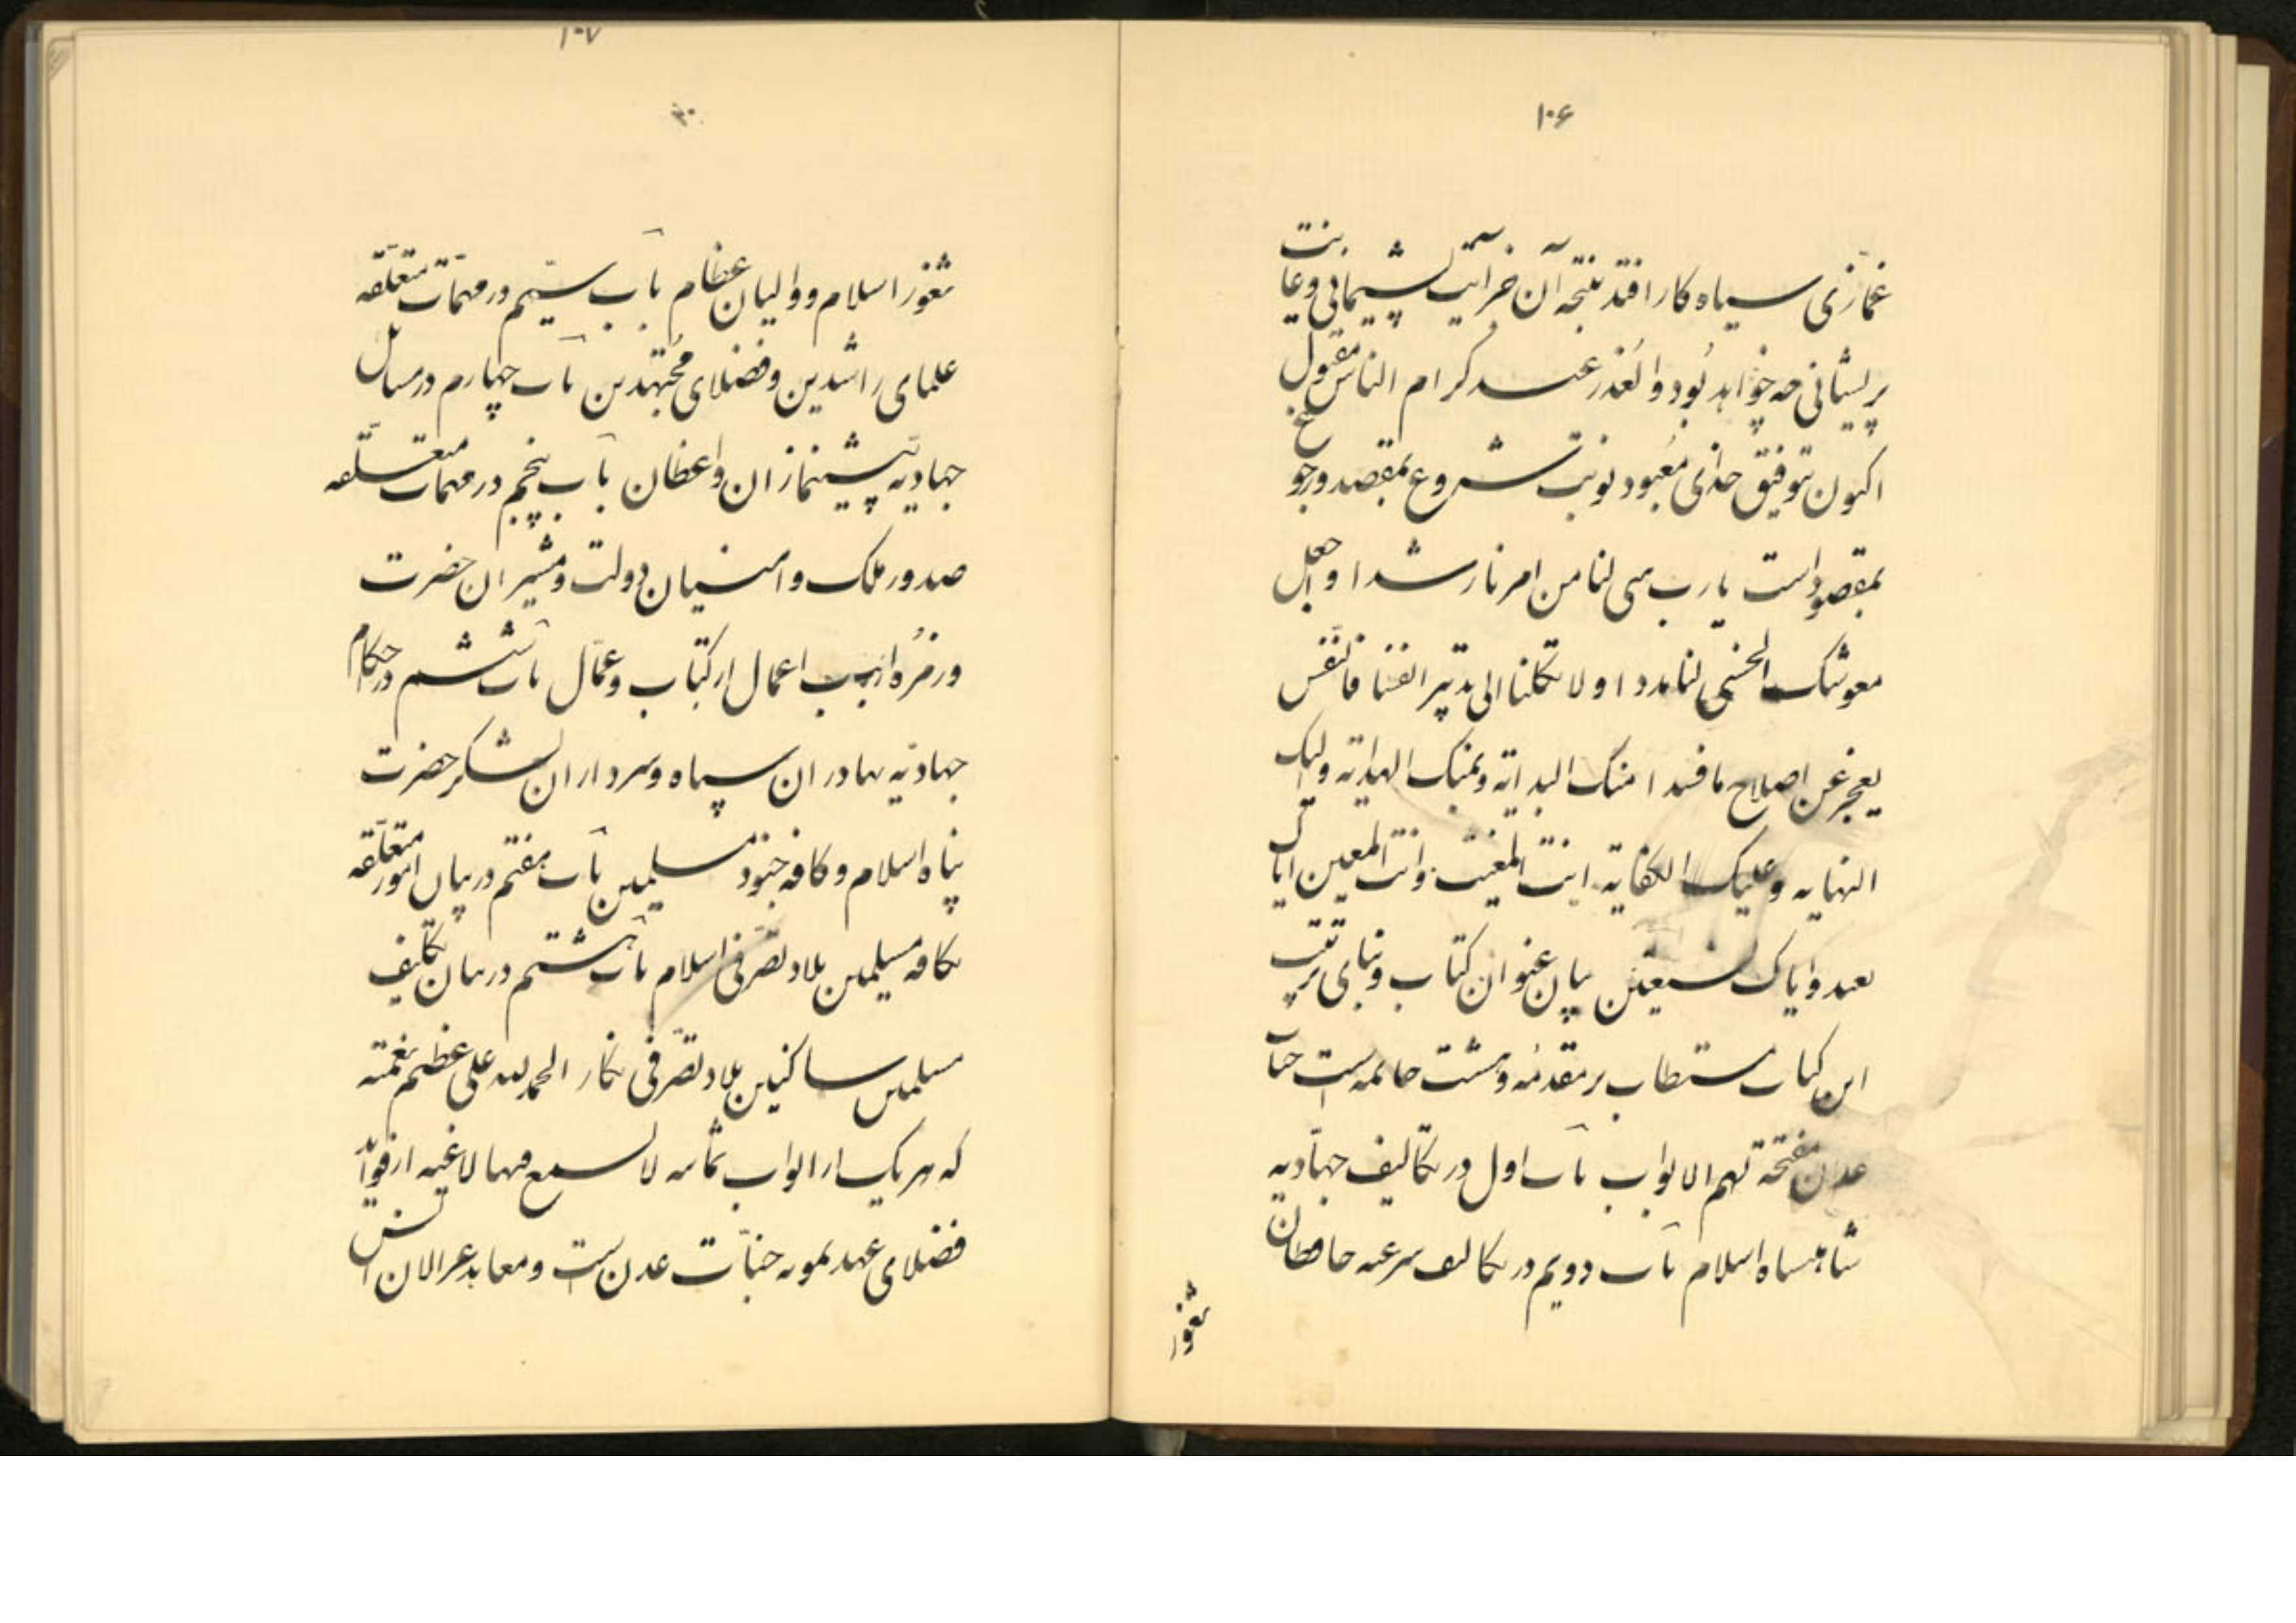 ۱۰۶
غمّازی سیاه کار افتد نتیجه آن جز آیت پشیمانی و غایت
پریشانی چه خواهد بود والعذر عند کرام الناس مقبول
اکنون بتوفیق خدای معبود نوبت شروع بمقصد و رجوع
بمقصود است یا رب هیئ لنا من امرنا رشدا و اجعل
معونتک الحسنی لنا مددا و لا تکلنا الی تدبیر انفسنا فالنفس
یعجز عن اصلاح ما فسدا منک البدایه و بمنک الهدایه و الیک
النهایه و علیک الکفایه انت المغیث و انت المعین ایاک
نعبد و ایاک نستعین بیان عنوان کتاب و بنای ترتیب
این کتاب مستطاب بر مقدمه و هشت خاتمه است جنات
عدن مفتحة لهم الابواب باب اول در تکالیف جهادیه
شاهنشاه اسلام باب دویم در تکالیف شرعیه حافظان
ثغور
۱۰۷
ثغور اسلام و والیان عظام باب سیّم در مهمّات متعلّقه
علمای راشدین و فضلای مجتهدین باب چهارم در مسائل
جهادیّه پیشنمازان و واعظان باب پنجم در مهمات متعلّقه
صدور ملک و امنیان دولت و مشیران حضرت
و زمره ارباب اعمال از کتّاب و عمّال باب ششم در احکام
جهادیّه بهادران سپاه و سرداران لشکر حضرت
پناه اسلام و کافه جنود مسلمین باب هفتم در بیان امور متعلّقه
بکافه مسلمین بلاد تصرفی اسلام باب هشتم در بیان تکلیف
مسلمین ساکنین بلاد تصرّفی کفار الحمد لله علی عظیم نعمته
که هر یک از ابواب ثمانیه لا تسمع فیها لاغیه از فواید
فضلای عهد نمونه جنّات عدن است و معابد عز الامن انس